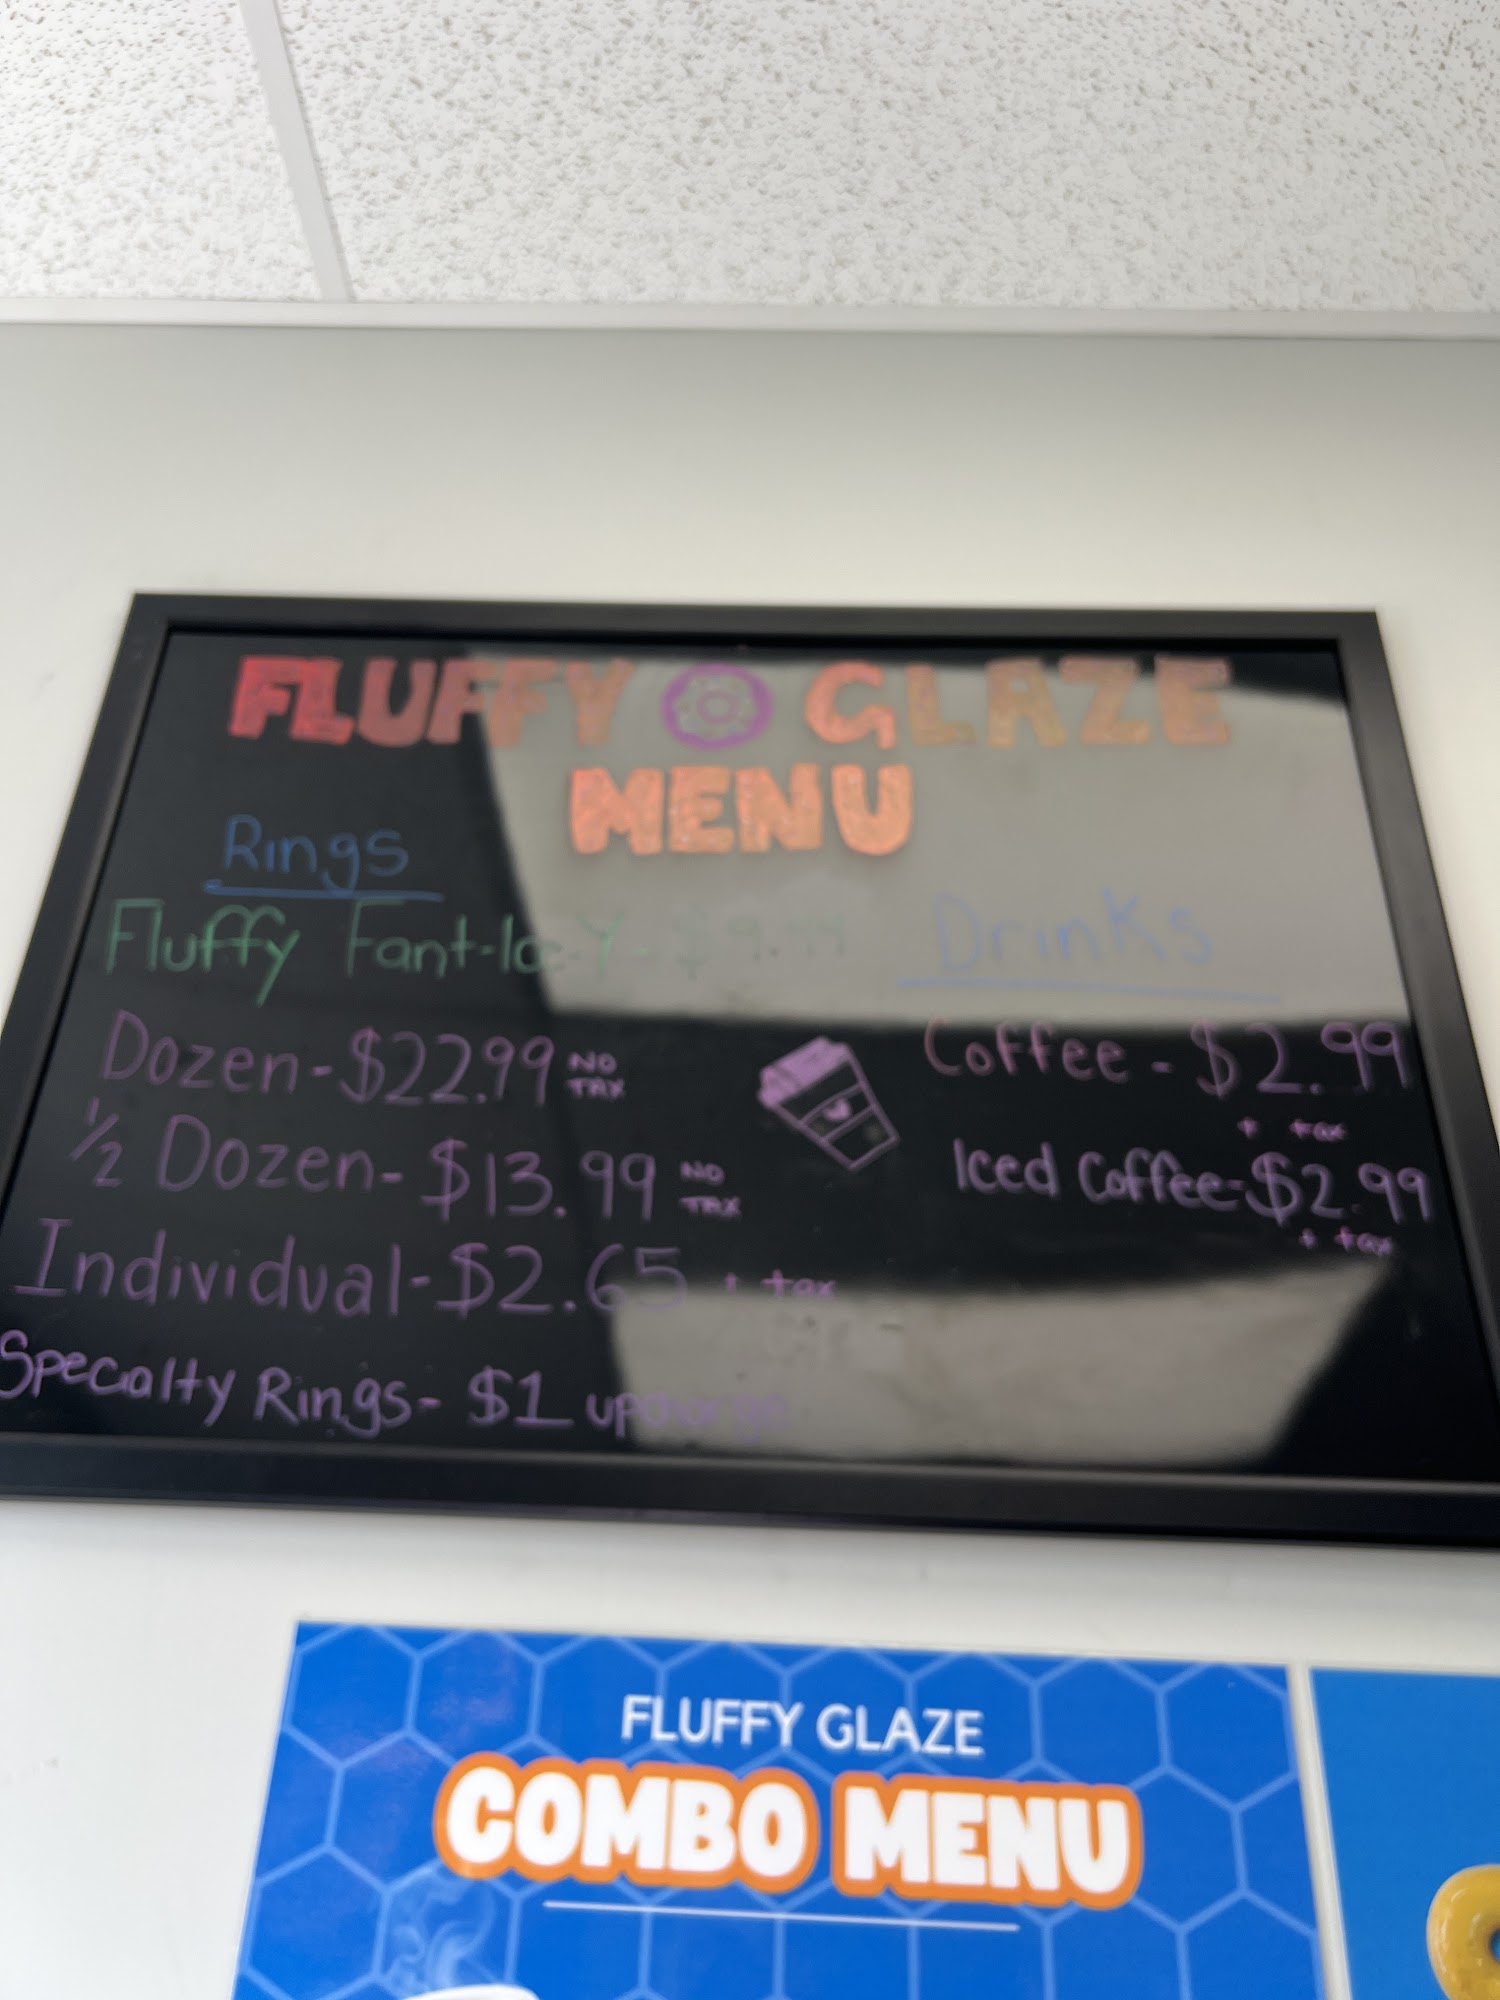 FLUFFY GLAZE
MENU
Rings
Fluffy Fant-Ice-Y-
Dozen-$22.99 NO TAX
1/2 Dozen-$13.99 NO TAX
Individual-$2.65 + tax
Specialty Rings-$1 upcharge
Drinks
Coffee-$2.99
+ tax
Iced Coffee-$2.99
+ tax
FLUFFY GLAZE
COMBO MENU